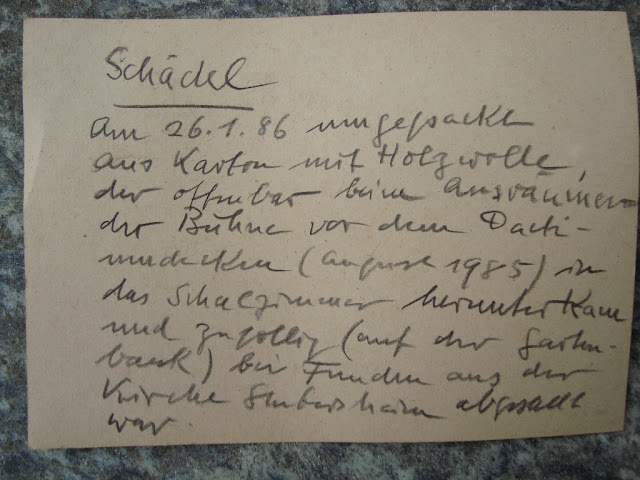 Schädel
Am 26.1.86 umgepackt
aus Karton mit Holzwolle,
der offenbar beim Ausräumen
der Bühne vor dem Dach-
umdecken (August 1985) in
das herunterkam
und zufällig (auf der Garten-
bank) bei Funden aus der
Kirche Stubersheim
war.